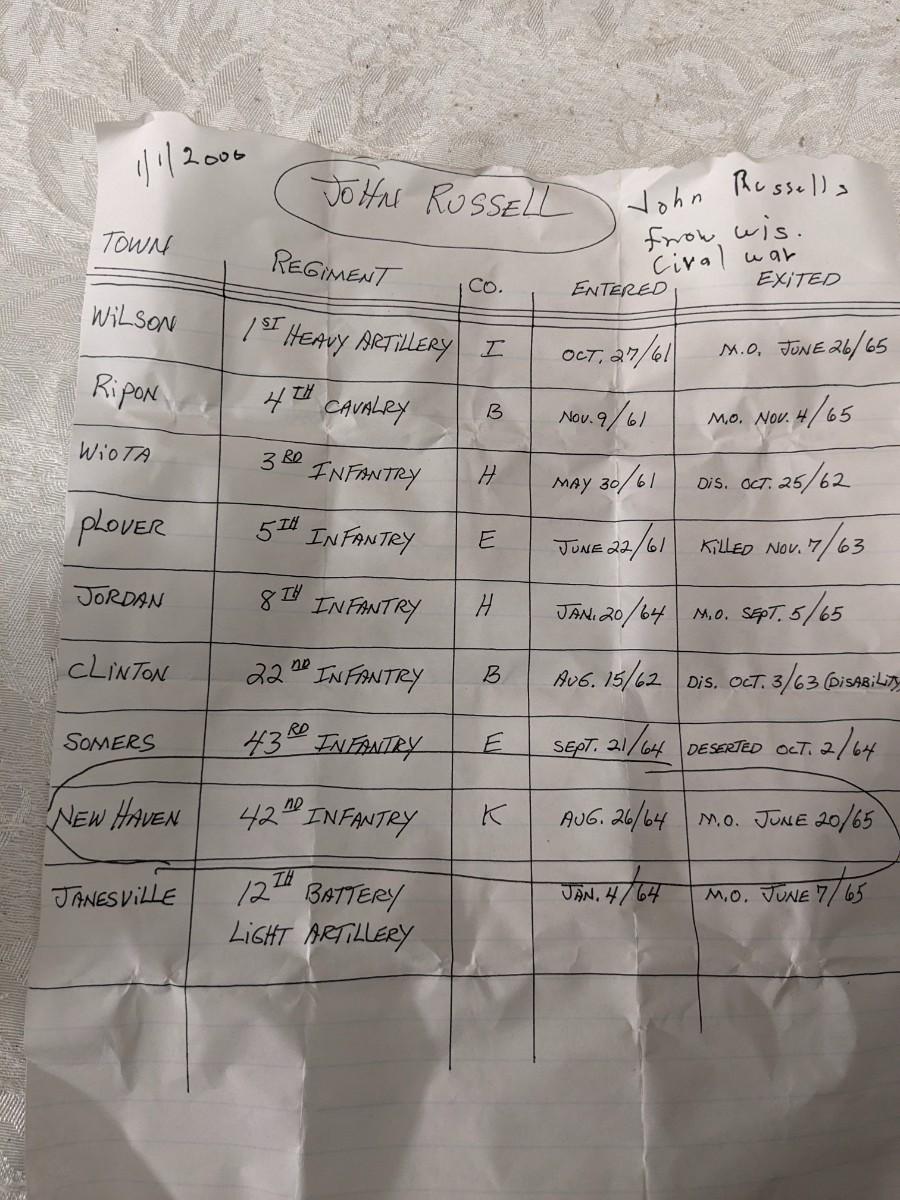 1/1/2000
JOHN RUSSELL
John Russells
from wis.
Cival war
TOWN REGIMENT CO. ENTERED EXITED
WILSON 1ST HEAVY ARTILLERY I OCT. 27/61 M.O. JUNE 26/65
RIPON 4TH CAVALRY B NOV. 9/61 M.O. NOV. 4/65
WIOTA 3RD INFANTRY H MAY 30/61 DIS. OCT. 25/62
PLOVER 5TH INFANTRY E JUNE 22/61 KILLED NOV. 7/63
JORDAN 8TH INFANTRY H JAN. 20/64 M.O. SEPT. 5/65
CLINTON 22ND INFANTRY B AUG. 15/62 DIS. OCT. 3/63 (DISABILITY)
SOMERS 43RD INFANTRY E SEPT. 21/64 DESERTED OCT. 2/64
NEW HAVEN 42ND INFANTRY K AUG. 26/64 M.O. JUNE 20/65
JANESVILLE 12TH BATTERY JAN. 4/64 M.O. JUNE 7/65
LIGHT ARTILLERY